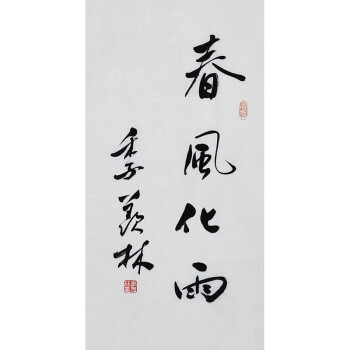 春風化雨
季羡林